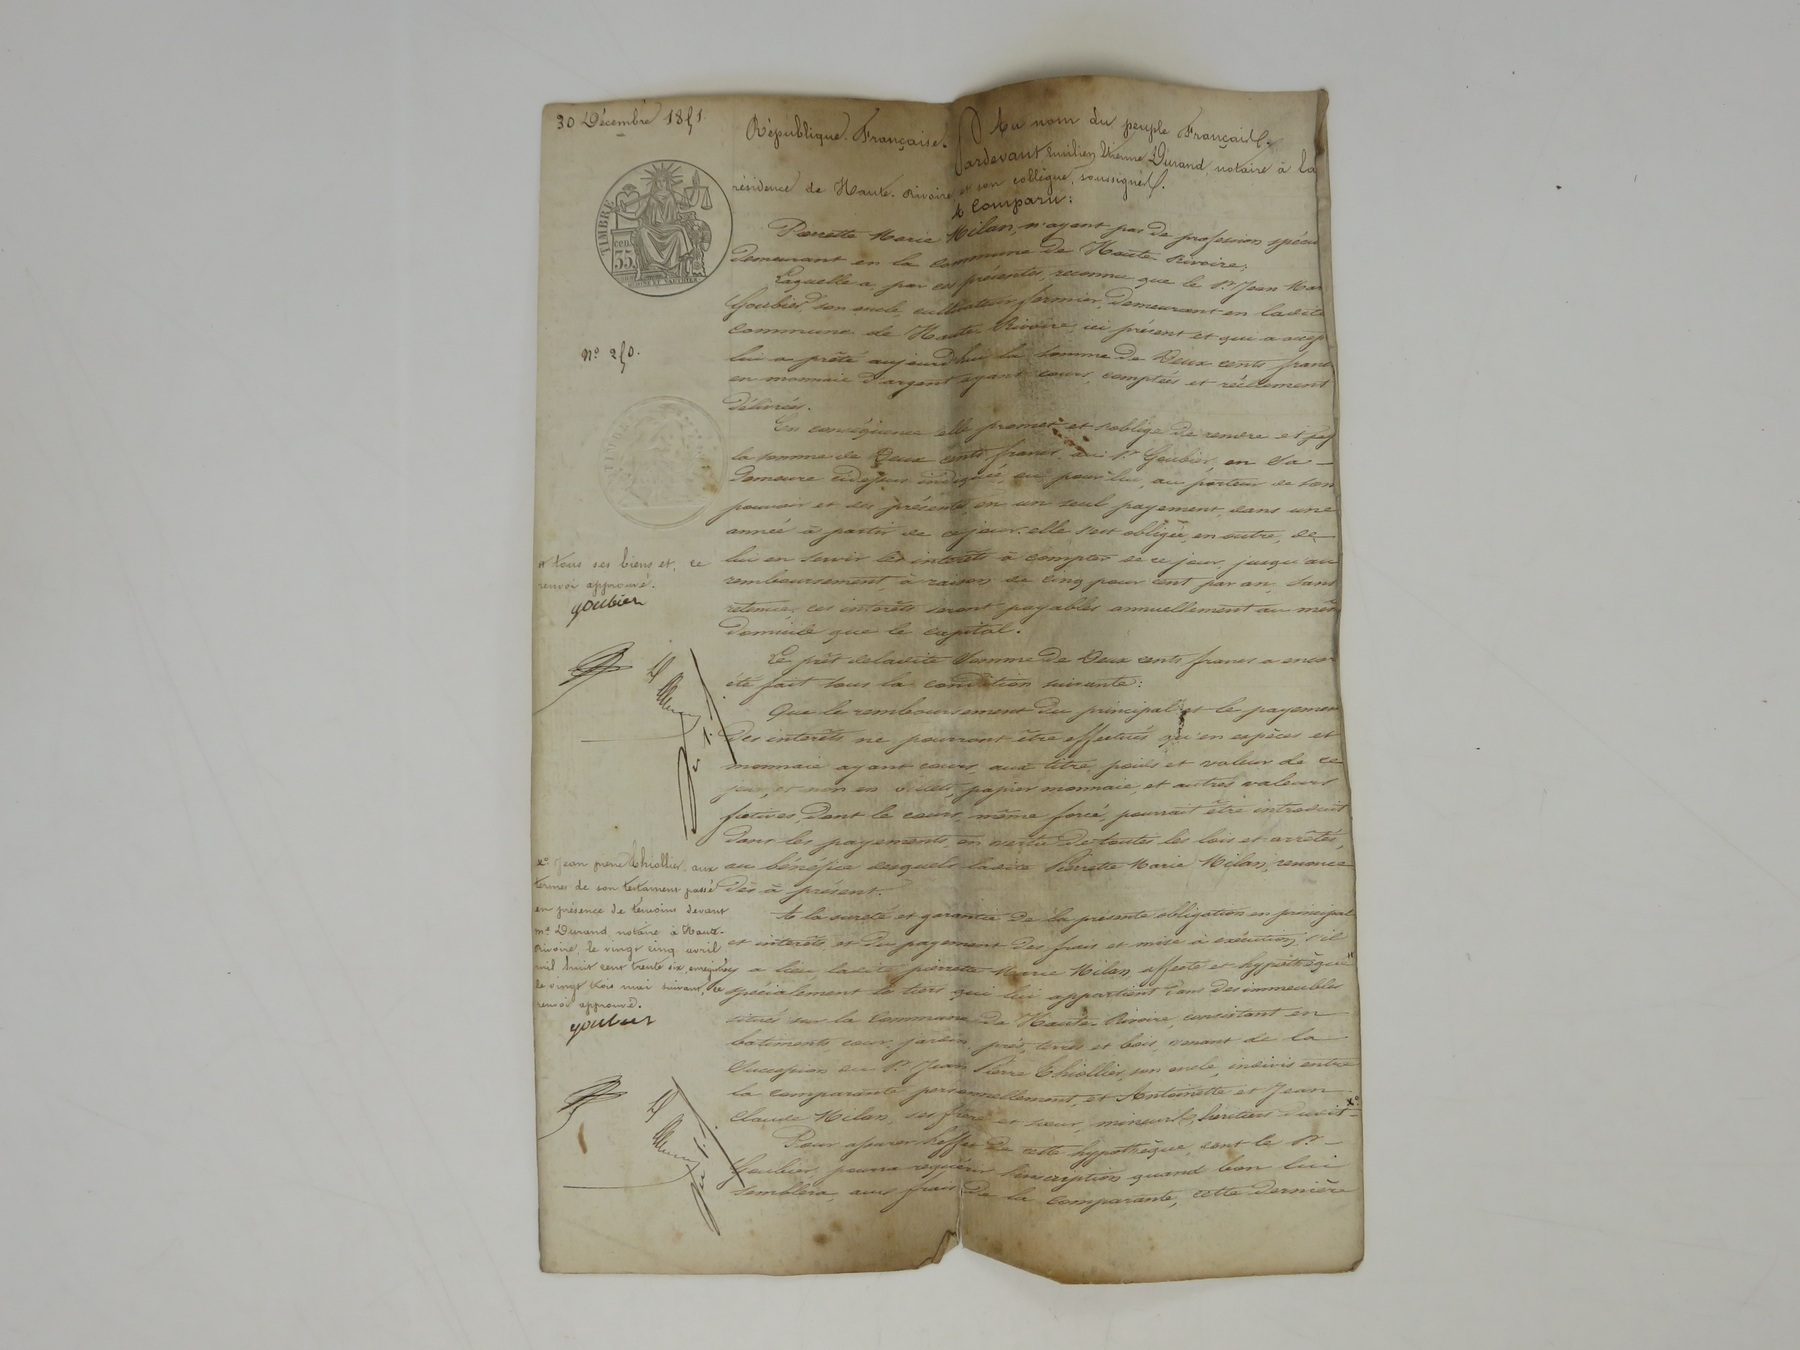 30 Décembre 1851
République Française. Au nom du peuple Français.
Pardevant Emilien Etienne Durand, notaire à la
résidence de Haute-Rivoire et son collègue, soussignés.
A Comparu:
TIMBRE
cen.
35
Pierrette Marie Milan, n'ayant pas de profession spécia
demeurant en la commune de Haute-Rivoire;
Laquelle a par ces présentes, reconnu que le Sr. Jean Mar
Goubier, son oncle, cultivateur fermier, demeurant en ladite
commune de Haute-Rivoire, ici présent et qui a accep
N° 250.
lui a prêté aujourd'hui la somme de Deux cents franc
en monnaie d'argent ayant cours, comptés et réellement
délivrés.
En conséquence elle promet et s'oblige de rendre et pay
la somme de Deux cents francs, au Sr. Goubier, en sa
demeure cidessus indiquée, ou pour lui, au porteur de son
pouvoir et des présentes, en un seul payement, dans une
année à partir de ce jour. elle s'est obligée, en outre, de
lui en servir les intérêts à compter de ce jour, jusqu'au
remboursement, à raison de cinq pour cent par an, sans
retenue. ces intérêts seront payables annuellement au mêm
domicile que le capital.
* tous ses biens et, ce
renvoi approuvé.
goubier
Le prêt deladite somme de Deux cents francs a encor
été fait sous la condition suivante:
Que le remboursement du principal et le payemen
des intérêts ne pourront être effectués qu'en espèces et
monnaie ayant cours, aux titre, poids et valeur de ce
jour, et non en billets, papier monnaie, et autres valeurs
fictives, dont le cours, même forcé, pourrait être introduit
dans les payements, en vertu de toutes les lois et arrêtés,
au bénéfice desquels ladite Pierrette Marie Milan, renonce
dès à présent.
A la sureté et garantie de la présente obligation en principal
et intérêts, et du payement des frais et mise à exécution, s'il
y a lieu, ladite pierrette Marie Milan affecte et hypothèque*
spécialement le tiers qui lui appartient dans des immeubles
situés sur la commune de Haute-Rivoire, consistant en
batiments, cour, jardin, prés, terres et bois, venant de la
succession du Sr. Jean Pierre Chiollier, son oncle, indivis entre
la comparante personnellement, et Antoinette et Jean
Claude Milan, ses frère et sœur, mineurs, héritiers dudit x°
x° Jean pierre Chiollier, aux
termes de son testament passé
en présence de témoins devant
me. Durand, notaire à Haute-
Rivoire, le vingt cinq avril
mil huit cent trente six, enregistré
le vingt trois mai suivant, ce
renvoi approuvé.
goubier
Pour opérer l'effet de cette hypothèque, dont le Sr.
Goubier pourra requérir l'inscription quand bon lui
semblera, aux frais de la comparante, cette dernière